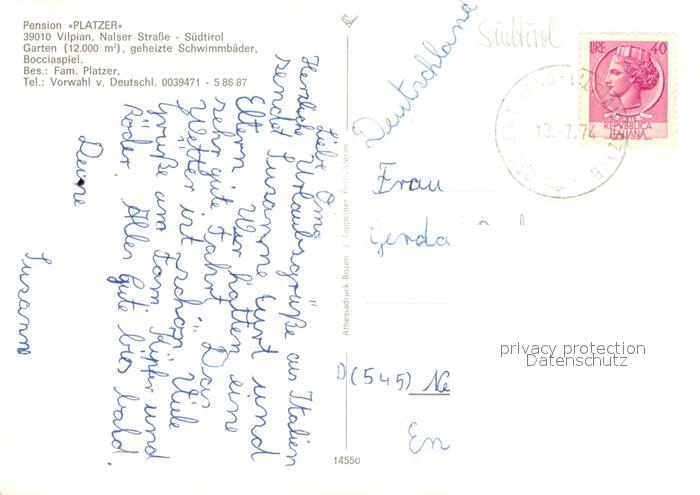 Pension »PLATZER«
39010 Vilpian, Nalser Straße - Südtirol
Garten (12.000 m²), geheizte Schwimmbäder,
Bocciaspiel.
Bes.: Fam. Platzer,
Tel.: Vorwahl v. Deutschl. 0039471 - 5 86 87
Liebe Oma
Herzliche Urlaubsgrüße aus Italien
sendet Susanne Kurt und
Eltern. Wir hatten eine
sehr gute Fahrt. Das
Wetter ist schön. Viele
Grüße an Fam. und
Röder. Alles gute bis bald.
Deine
Susanne
Athesiadruck Bozen J. Tappeiner Foto Meran
14550
Südtirol
LIRE 40
REPVBBLICA
ITALIANA
13.-7.74
Deutschland
Frau
Gerda
D (545) Ne
En
privacy protection
Datenschutz